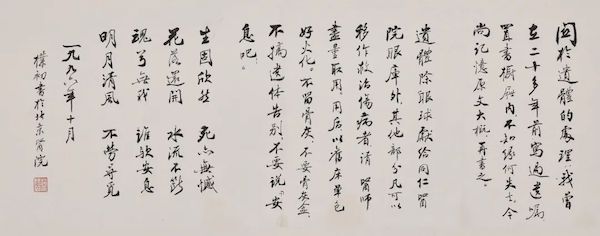 关於遺體的處理我曾
在二十多年前寫過遺嘱
置書橱屉内不知缘何失去今
尚记憶原文大概再書之
遺體除眼球獻给同仁醫
院眼库外其他部分凡可以
移作救治傷病者请醫师
盡量取用用后以舊床單包
好火化。不留骨灰,不要骨灰盒,
不搞遗体告别不要说“安
息吧”
生固欣然 死亦無憾
花落還開 水流不断
魂兮無我 誰欤安息
明月清风 不劳寻觅
一九九六年十月
樸初書於北京醫院